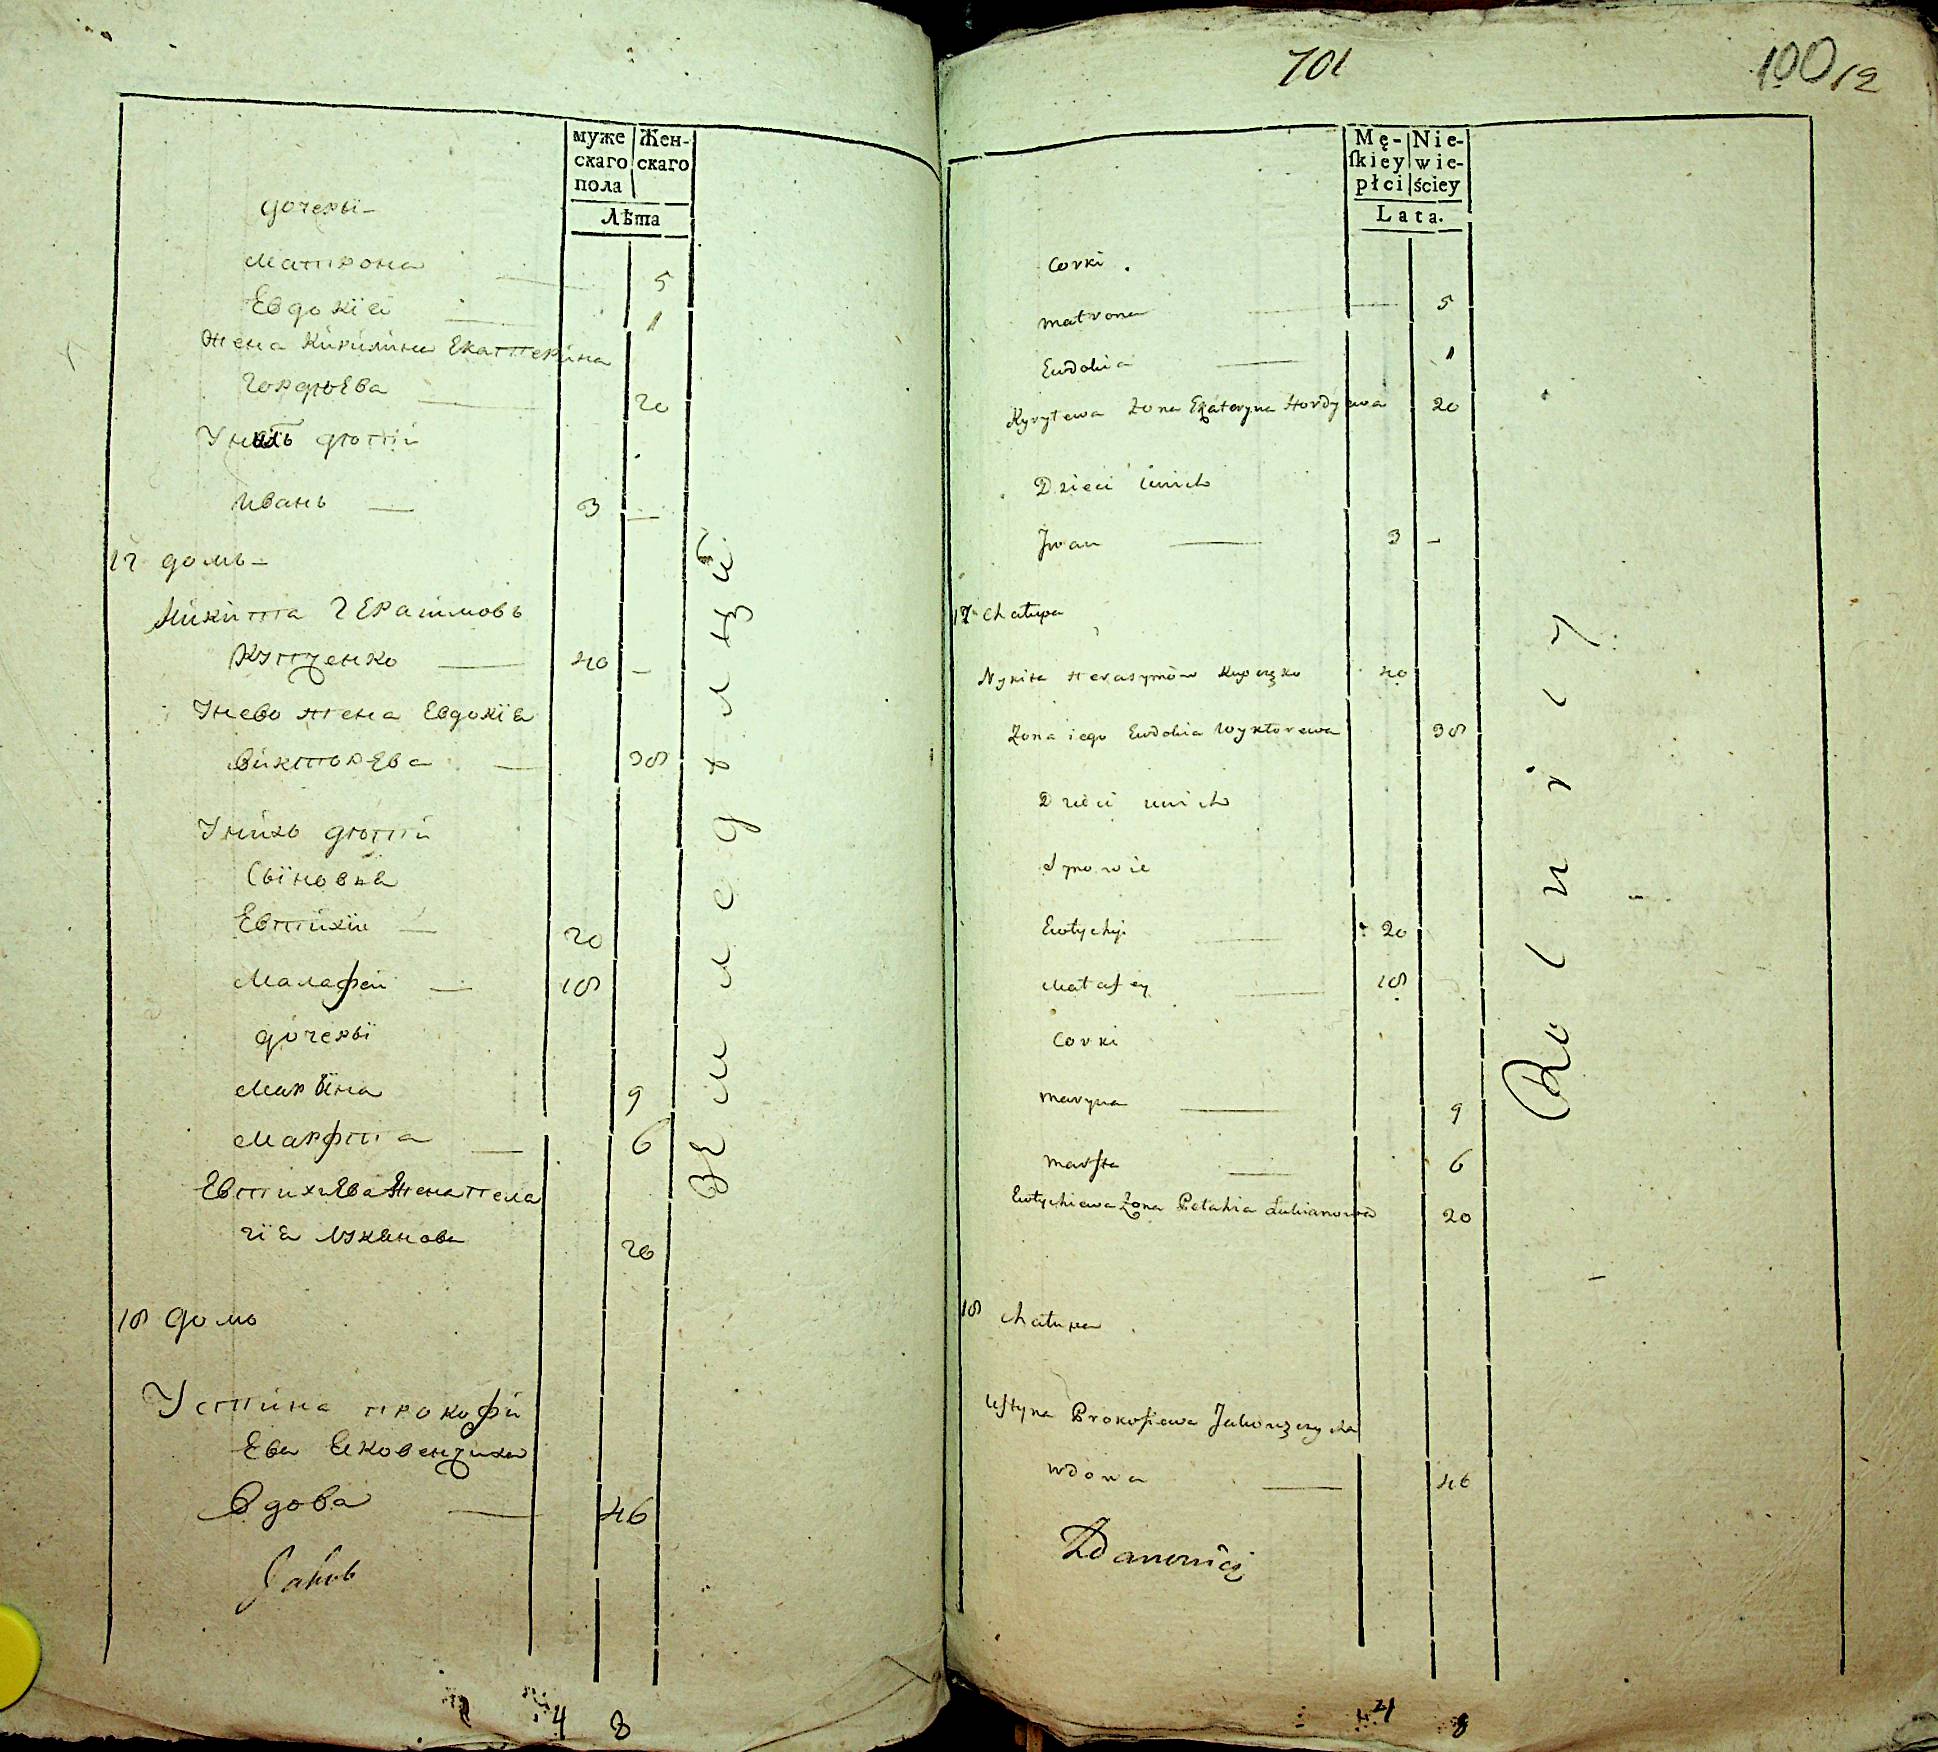 муже
скаго
пола
Жен-
скаго
Лѣта
дочерьї-
Матрона 5
Евдокїя 1
жена Кирилина Екатерина
Гордѣева 20
У нихъ дѣти
Иванъ 3 —
17 домъ-
Никита Герасимовъ
Купченко 40 —
У нево жена Евдокїя
Викторева 38
У нихъ дѣти
Сыновья
Евтихїй 20
Малафей 18
дочерьї
Марина 9
Марфта 6
Евтихиева жена Пела
гїя Лукянова 20
18 домъ
Устина Прокофи
Ева Яковенчиха
Вдова 46
Jakub
Земледѣлцы
4 8
701
100 12
Mę-
skiey
płci
Nie-
wie-
ściey
Lata.
Corki.
Matrona 5
Eudokia 1
Kyryłowa Żona Ekateryna Hordyewa 20
Dzieci unich
Jwan 3 -
17 Chałupa
Nykita Herasymów Kupczeko 40
Żona iego Eudokia Wyktorewa 38
Dzieci unich
Synowie
Ewtychyi 20
Małafey 18
Corki
Maryna 9
Marfta 6
Ewtychiewa Żona Pelahia Lukianowa 20
18 Chałupa
Ustyna Prokofiewa Jakowczycha
wdowa 46
Zdanowicz
Rolnicy
4 8